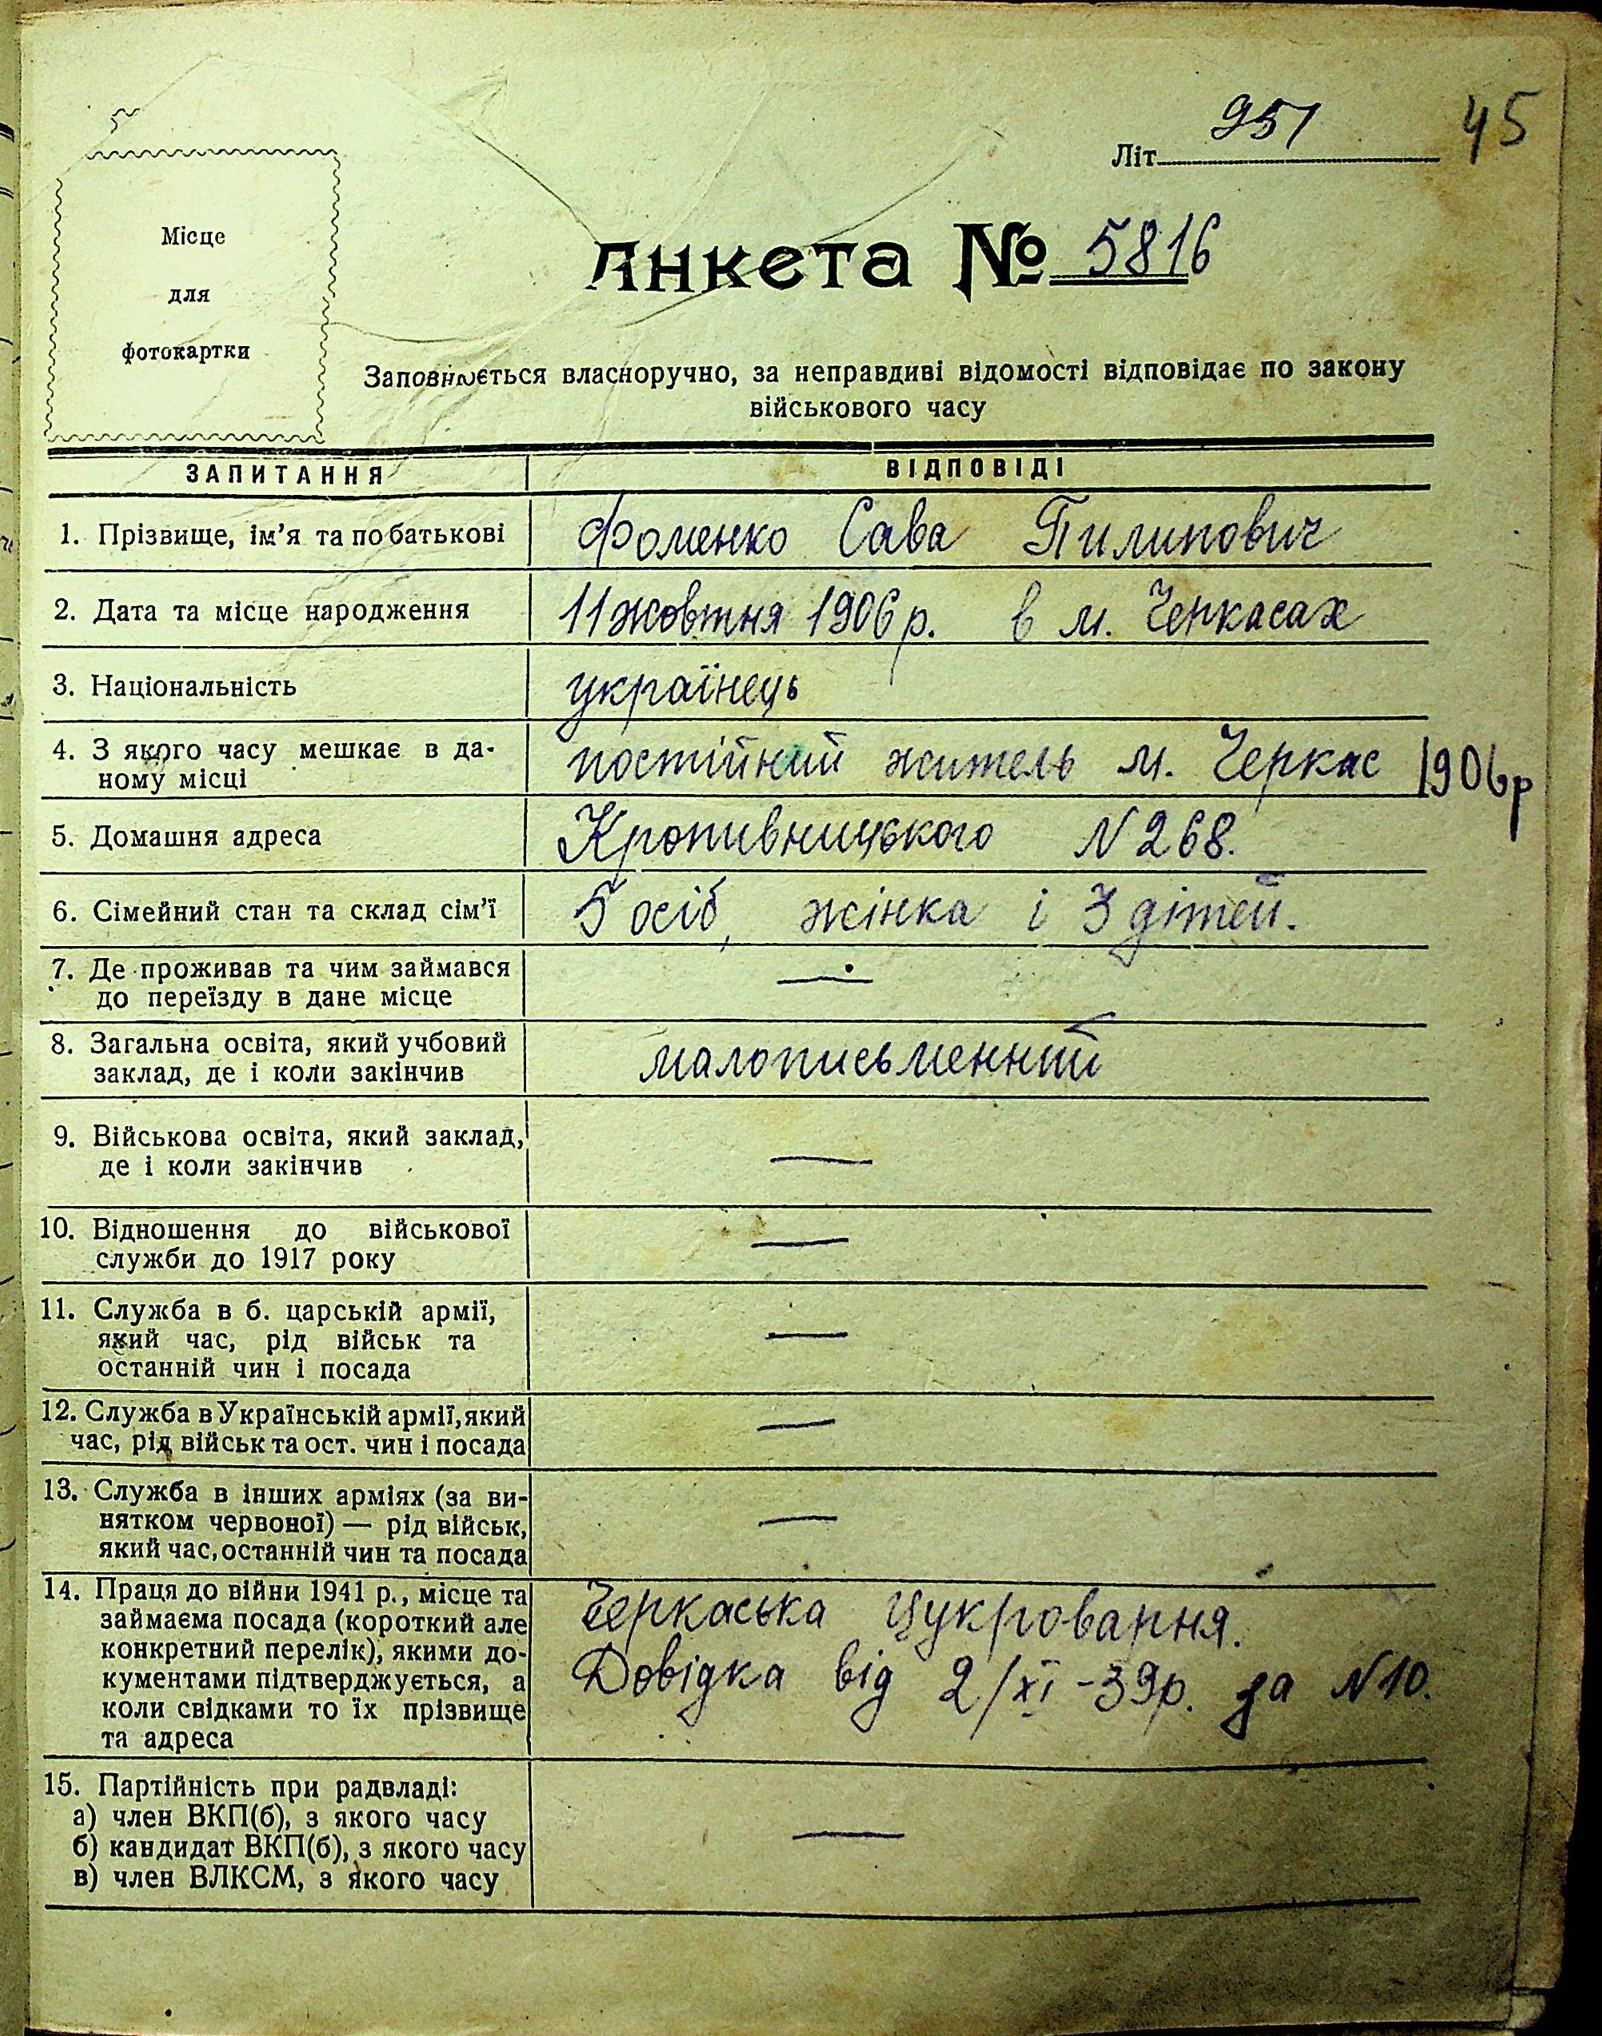 951
45
Літ
Місце
для
фотокартки
Анкета № 5816
Заповнюється власноручно, за неправдиві відомості відповідає по закону
військового часу
ЗАПИТАННЯ
ВІДПОВІДІ
1. Прізвище, ім'я та по батькові
Фоменко Сава Пилипович
2. Дата та місце народження
11 жовтня 1906 р. в м. Черкасах
3. Національність
українець
4. З якого часу мешкає в да-
ному місці
постійний житель м. Черкас 1906р
5. Домашня адреса
Кропивницького N 268.
6. Сімейний стан та склад сім'ї
5 осіб, жінка і 3 дітей.
7. Де проживав та чим займався
до переїзду в дане місце
—
8. Загальна освіта, який учбовий
заклад, де і коли закінчив
малописьменний
9. Військова освіта, який заклад,
де і коли закінчив
—
10. Відношення до військової
служби до 1917 року
—
11. Служба в б. царській армії,
який час, рід військ та
останній чин і посада
—
12. Служба в Українській армії, який
час, рід військ та ост. чин і посада
—
13. Служба в інших арміях (за ви-
нятком червоної) — рід військ,
який час, останній чин та посада
—
14. Праця до війни 1941 р., місце та
займаєма посада (короткий але
конкретний перелік), якими до-
кументами підтверджується, а
коли свідками то їх прізвище
та адреса
Черкаська Цукроварня.
Довідка від 2/XI-39р. за N10.
15. Партійність при радвладі:
а) член ВКП(б), з якого часу
б) кандидат ВКП(б), з якого часу
в) член ВЛКСМ, з якого часу
—